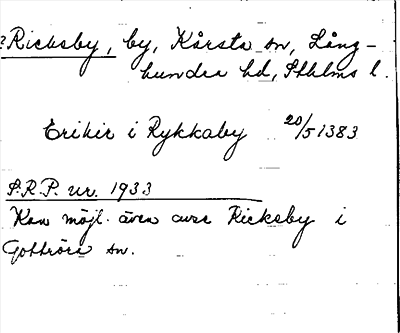 ?Ricksby, by, Kårsta sn, Lång-
hundra hd, Sthlms l.
Erikir i Rykkaby 20/5 1383
S.R.P. nr. 1933
Kan möjl. även avse Ricksby i
Gottröra sn.